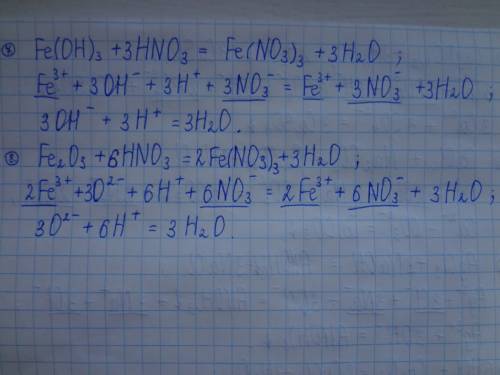 ④ Fe(OH)₃ + 3HNO₃ = Fe(NO₃)₃ + 3H₂O ;
Fe³⁺ + 3OH⁻ + 3H⁺ + 3NO₃⁻ = Fe³⁺ + 3NO₃⁻ + 3H₂O ;
3OH⁻ + 3H⁺ = 3H₂O.
⑤ Fe₂O₃ + 6HNO₃ = 2Fe(NO₃)₃ + 3H₂O ;
2Fe³⁺ + 3O²⁻ + 6H⁺ + 6NO₃⁻ = 2Fe³⁺ + 6NO₃⁻ + 3H₂O ;
3O²⁻ + 6H⁺ = 3H₂O.